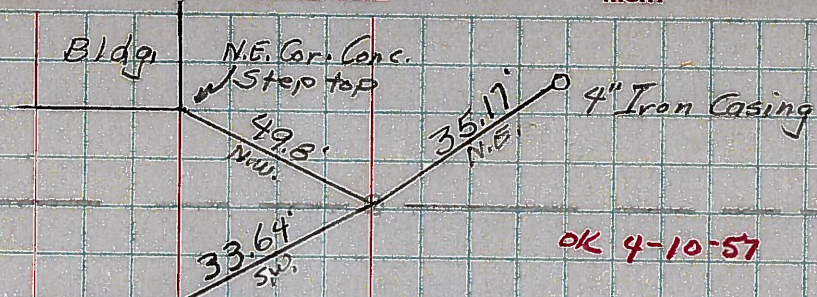 Bldg.
N.E. Cor. Conc.
Step top
49.8'
N.W.
35.17'
N.E.
4" Iron Casing
33.64'
S.W.
OK 4-10-57